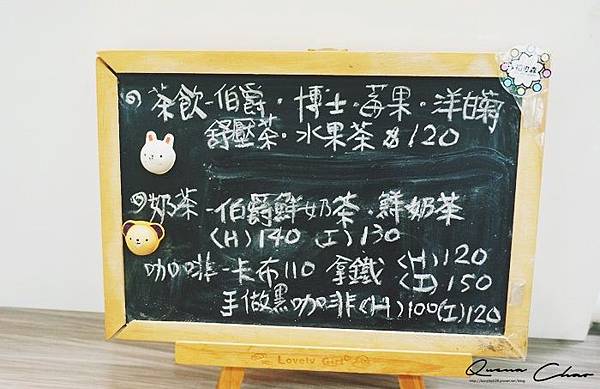 茶飲-伯爵·博士·莓果·洋甘菊
舒壓茶·水果茶 $120
奶茶-伯爵鮮奶茶·鮮奶茶
(H)140 (I)130
咖啡-卡布110 拿鐵 (H)120
(I)150
手做黑咖啡(H)100(I)120
Lovely Girl
Quena Chao